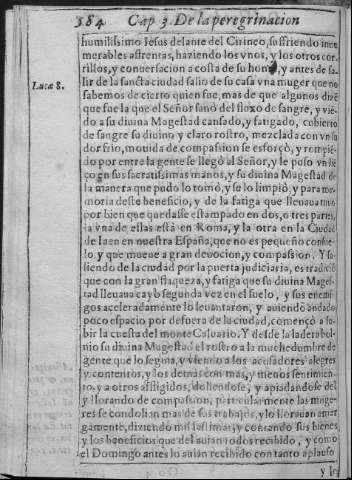 584 Cap 3. De la peregrinacion
humilissimo Iesus delante del Cirineo, sufriendo innu
merables afrentas, haziendo los vnos, y los otros cor
rillos, y conuersacion a costa de su honra, y antes de sa
lir de la sancta ciudad salio de su casa vna muger que no
Lucæ 8.
sabemos de cierto quien fue, mas de que algunos dizē
que fue la que el Señor sanò del fluxo de sangre, y viē
do a su diuina Magestad cansado, y fatigado, cubierto
de sangre su diuino y claro rostro, mezclada con vn su
dor frio, mouida de compassion se esforçò, y rompiē
do por entre la gente se llegó al Señor, y le puso vn liē
ço en sus sacratissimas manos, y su diuina Magestad de
la manera que pudo lo tomò, y se lo limpiò, y para me-
moria deste beneficio, y de la fatiga que lleuaua tuuo
por bien que quedasse estampado en dos, o tres partes,
la vna de ellas està en Roma, y la otra en la Ciudad
de Iaen en nuestra España, que no es pequeño consue
lo, y que mueue a gran deuocion, y compassion. Y sa
liendo de la ciudad por la puerta judiciaria, es tradiciō
que con la gran flaqueza, y fatiga que su diuina Mages
tad lleuaua cayò segunda vez en el suelo, y sus enemi
gos aceleradamente lo leuantaron, y auiendo andado
poco espacio por defuera de la ciudad, començò a su-
bir la cuesta del monte Caluario. Y desde la ladera bol-
uio su diuina Magestad el rostro a la muchedumbre de
gente que lo seguia, y viendo a los acusadores alegres
y contentos, y los demas con mas, y menos sentimien
to, y a otros afligidos, doliendose, y apiadandose del
y llorando de compassion, particularmente las muge-
res se condolian mas de sus trabajos, y lo llorauan amar
gamente, diziendo mil lastimas, y contando sus bienes
y los beneficios que del auian todos recibido, y como
el Domingo antes lo auian recibido con tanto aplauso